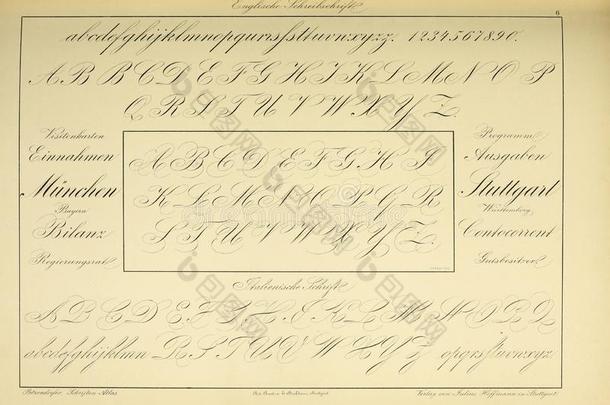 Englische Schreibschrift
6
abcdefghijklmnopqrsſstuvwxyz. 1234567890.
A B B C D E F G H I K L M N O P
Q R S T U V W X Y Z.
Visitenkarten
Einnahmen
München
Bayern
Bilanz
Regierungsrat
A B C D E F G H I
K L M N O P Q R
S T U V W X Y Z.
Programm
Ausgaben
Stuttgart
Württemberg
Contocorrent
Gutsbesitzer
Italienische Schrift
A B C D E F G H I K L M N O P Q
abcdefghijklmn R S T U V W X Y Z opqrsſtuvwxyz.
Petzendorfer, Schriften-Atlas
Verlag von Julius Hoffmann in Stuttgart
包图网